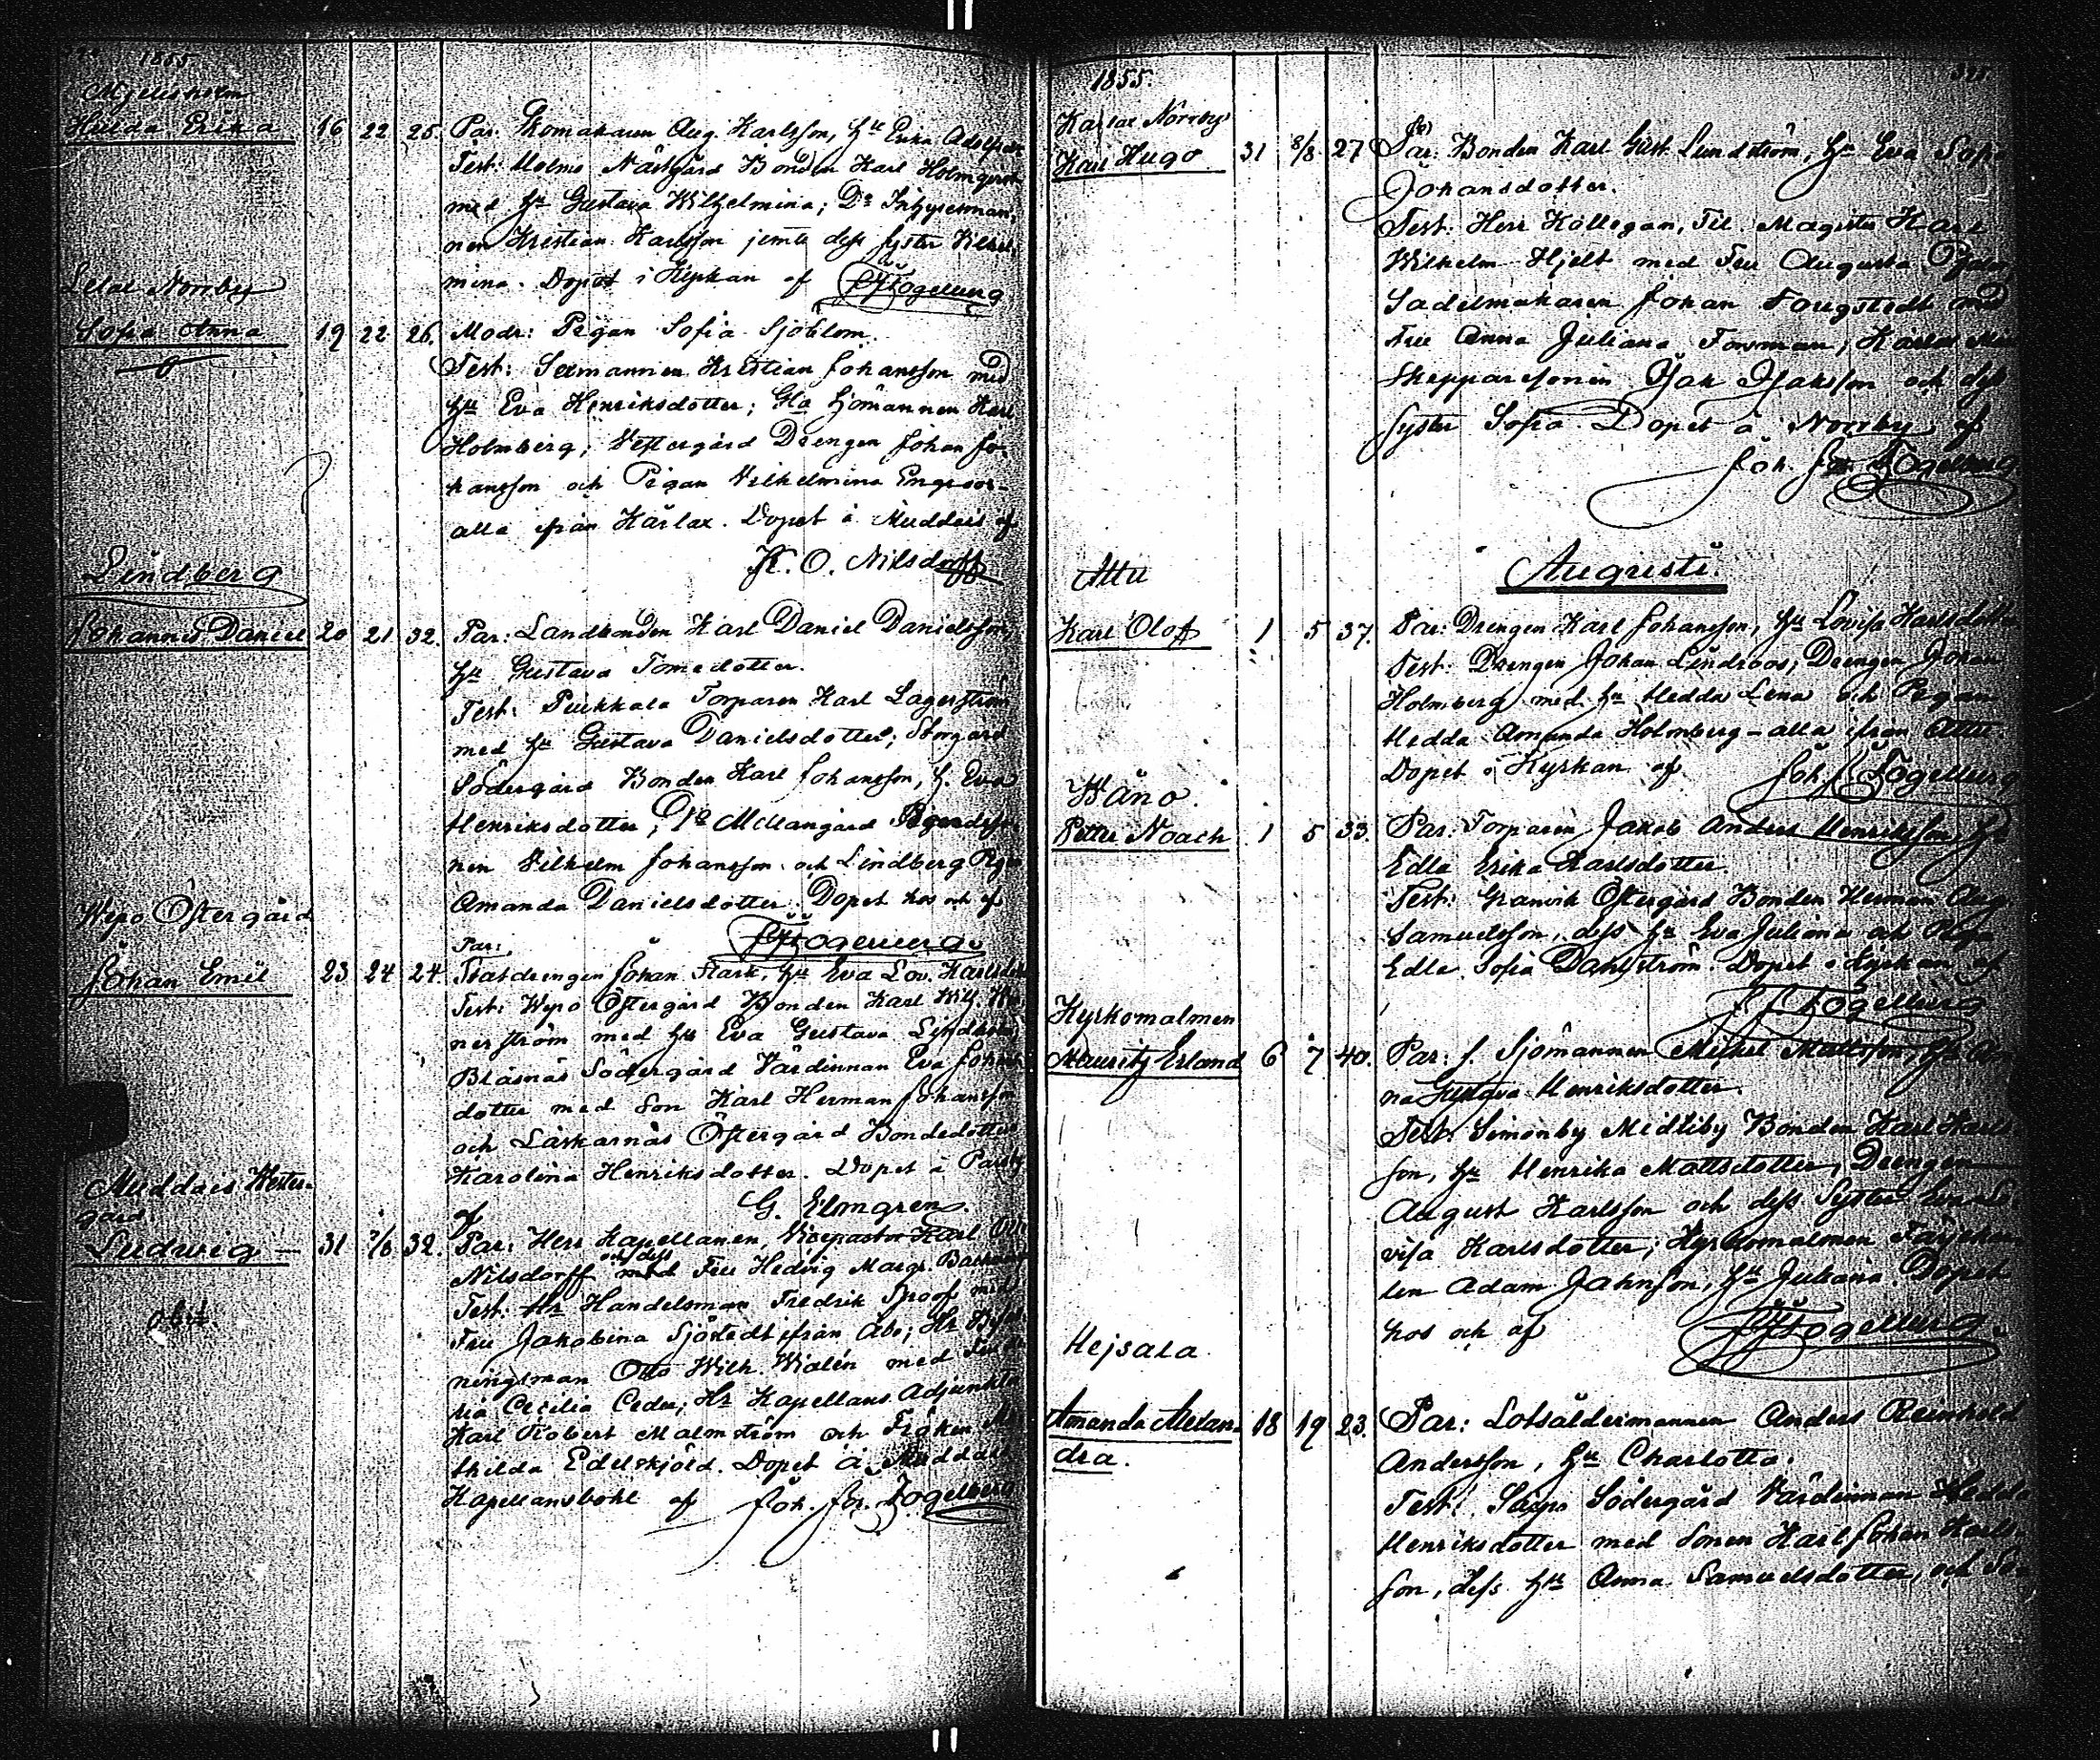 1855
Mjelisholm
Hulda Erika 16 22 25. Par: Skomakaren Aug. Karlsson, Hu Erika Adolfsd
Test: Malms Nästgård Bonden Karl Holmqvist
med Hu Gustava Wilhelmina; Do Inhysesman
nen Kristian Karlsson jemte dess syster Vilhel
mina. Döpt i Kyrkan af Fogelberg
Lelax Norrby
Sofia Anna 19 22 26. Modr: Pigan Sofia Sjöblom.
Test: Sexmannen Kristian Johansson med
Hu Eva Henriksdotter; Gla Sjömannen Karl
Holmberg; Vestergård Drengen Johan Jo
hansson och Pigan Vilhelmina Engroos
alla ifrån Kärlax. Döpet å Muddais af
K. O. Nilsdorff
Lindberg
Johannes Daniel 20 21 32. Par: Landbonden Karl Daniel Danielsson
Hu Gustava Tomsdotter.
Test: Peikkala Torparen Karl Lagerström
med Hu Gustava Danielsdotter; Storgård
Södergård Bonden Karl Johansson, H. Eva
Henriksdotter; Do Mellangård
nen Vilhelm Johansson och Lindberg Pigan
Amanda Danielsdotter. Döpet hos och af
Fogelberg
Wepo Östergård
Par:
Johan Emil 23 24 24. Statdrengen Johan Stark, Hu Eva Lov. Karlsdotter
Test: Wepo Östergård Bonden Karl Wilh.
nerström med Hu Eva Gustava Lindström
Bläsnäs Södergård Värdinnan Eva Johans
dotter med Son Karl Herman Johansson
och Läskarnäs Östergård Bondedotter
Karolina Henriksdotter. Döpet å Parsby
af G. Elmgren.
Muddais Wester-
gård
Ludwig 31 7/8 32. Par: Herr Kapellanen, Vicepastor Karl Otto
Nilsdorff och dess Fru Hedvig Margr.
Test: Hr Handelsman Fredrik Spoof med
Fru Jakobina Sjöstedt ifrån Åbo; Hr
ningsman Otto Wilh. Widén med Fru
ria Cecilia Ceder; Hr Kapellans Adjunkten
Karl Robert Malmström och Fröken Ma
thilda Edelskjöld. Döpet å Muddais
Kapellansbohl af Joh. Fr. Fogelberg
obiit.
1855.
Kärlax Norrby
Karl Hugo 31 8/8 27 Par: Bonden Karl Gust. Lundström, Hu Eva Sofia
Johansdotter.
Test: Herr Kollegan, Fil. Magister Karl
Wilhelm Hjelt med Fru Augusta
Sadelmakaren Johan Fougstedt med
Fru Anna Juliana Forsman; Kärlax
Skepparesonen Isak Isaksson och dess
syster Sofia. Döpet å Norrby af
Joh. Fr. Fogelberg
Augusti.
Attu
Karl Olof 1 5 37. Par: Drengen Karl Johansson, Hu Lovisa Karlsdotter
Test: Drengen Johan Lindroos; Drengen Johan
Holmberg med Hu Hedda Lena och Pigan
Hedda Amanda Holmberg - alla ifrån Attu
Döpet i Kyrkan af Joh. Fr. Fogelberg
Wäno.
Petter Noach 1 5 33. Par: Torparen Jakob Anders Henriksson, Hu
Edla Erika Karlsdotter.
Test: Granvik Östergård Bonden Herman Aug.
Samuelsson, dess Hu Eva Juliana och Pigan
Edla Sofia Dahlström. Döpet i Kyrkan af
J. F. Fogelberg
Kyrkomalmen
Mauritz Erland 6 7 40. Par: f. Sjömannen Mikael Mattsson, Hu An
na Gustava Henriksdotter.
Test: Simonby Midtiby Bonden Karl Karls
son, Hu Henrika Mattsdotter, Drengen
August Karlsson och dess Syster Eva Lo
visa Karlsdotter; Kyrkomalmen Färjekar
len Adam Jahnsson, Hu Juliana. Döpet
hos och af Fogelberg.
Hejsala
Amanda Alexan- 18 19 23. Par: Lotsåldermannen Anders Reinhold
dra. Andersson, Hu Charlotta.
Test: Södergård Värdinnan Hedda
Henriksdotter med Sonen Karl Johan Karls
son, dess Hu Anna Samuelsdotter, och So-